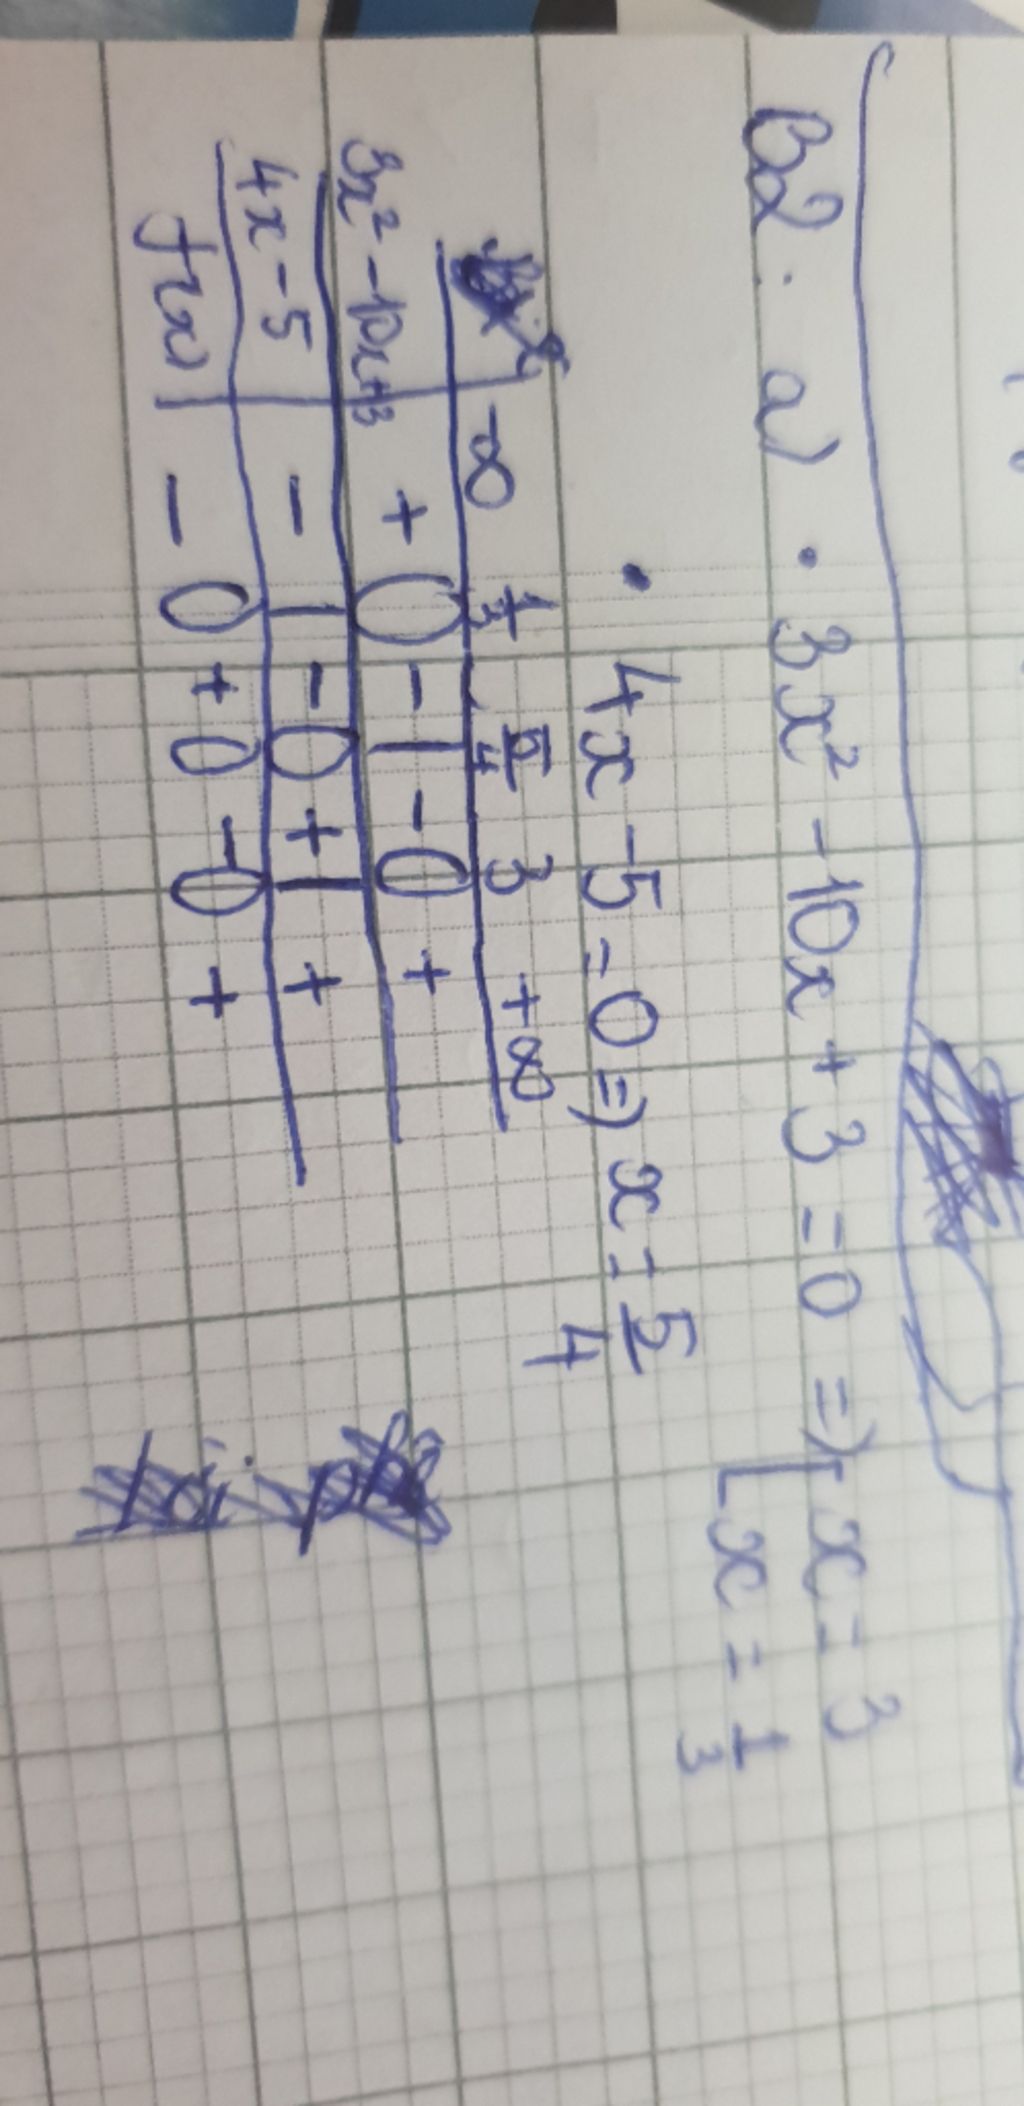 B2: a) • 3x² - 10x + 3 = 0 => [ x = 3
[ x = 1/3
• 4x - 5 = 0 => x = 5/4
x | -∞ 1/3 5/4 3 +∞
3x² - 10x + 3 | + 0 - | - 0 +
4x - 5 | - | - 0 + | +
f(x) | - 0 + 0 - 0 +